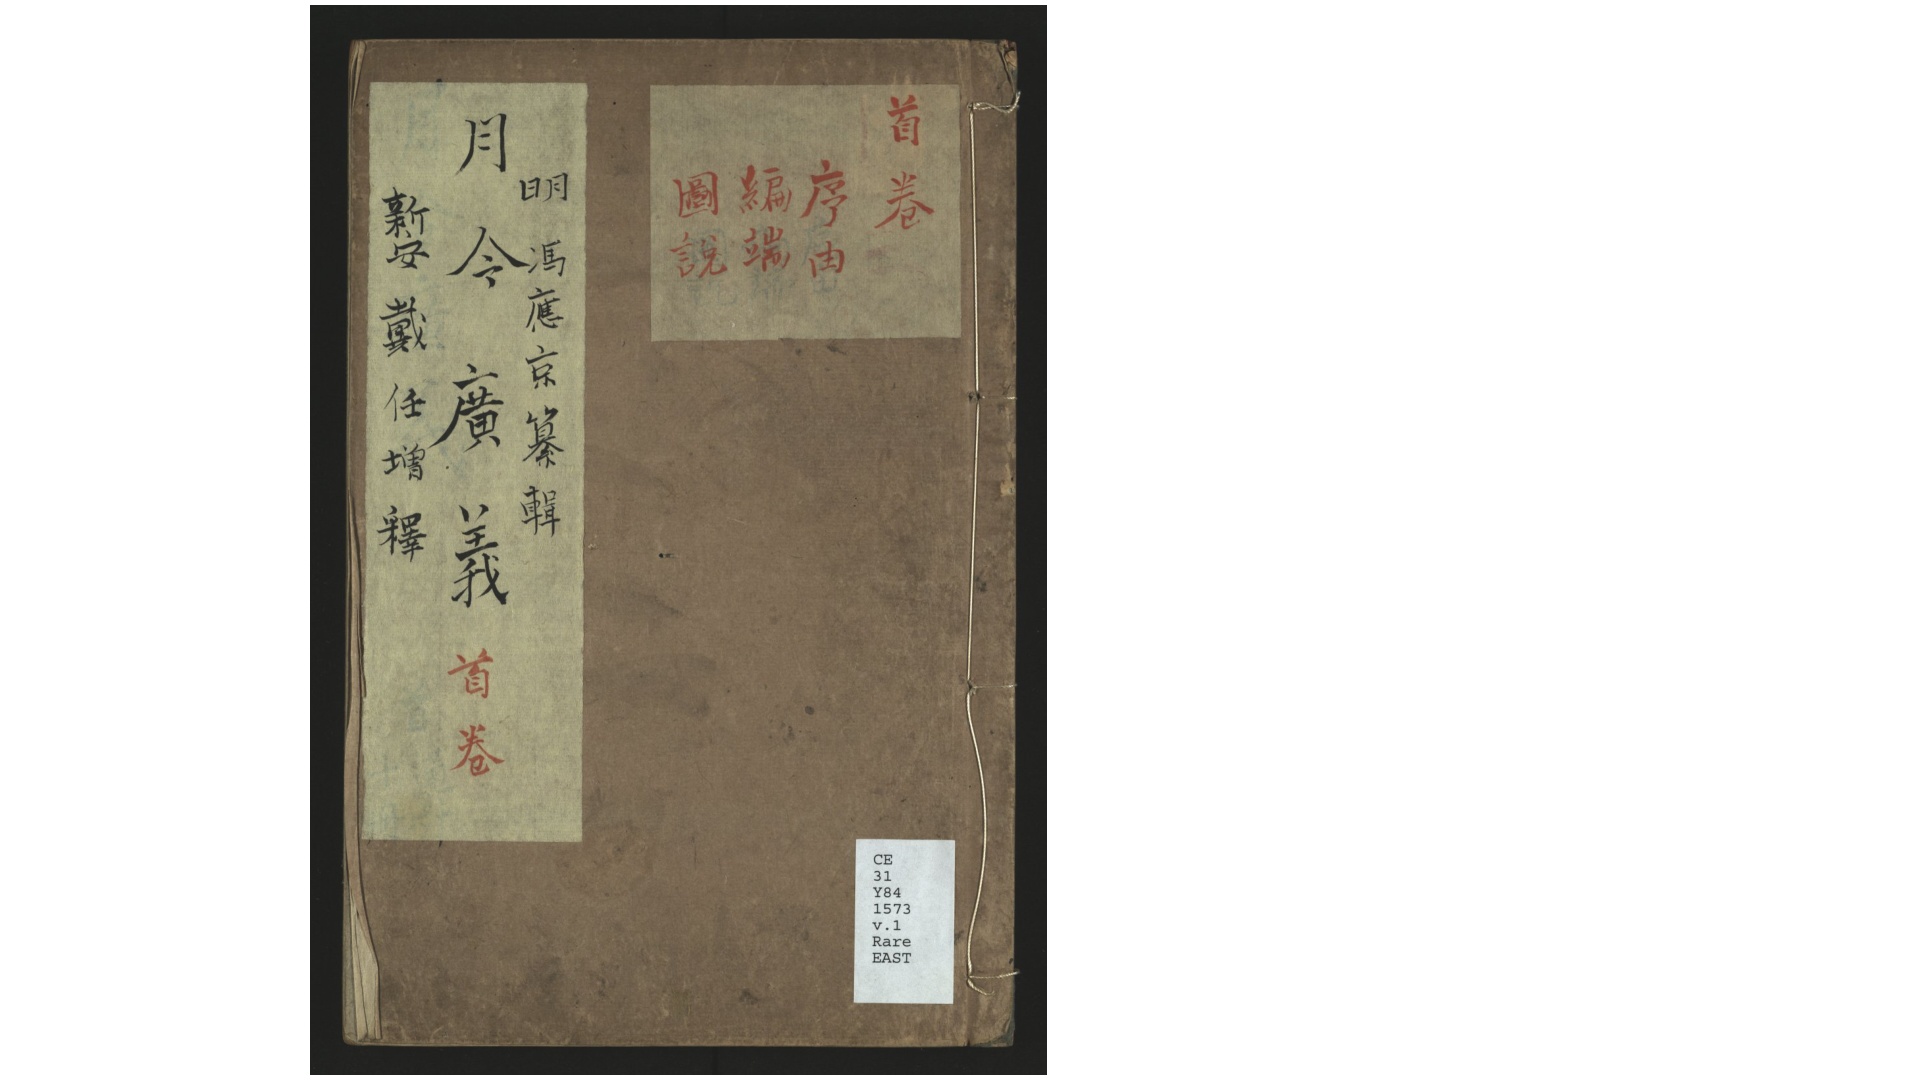 首卷
序由
編端
圖說
明 馮應京纂輯
月令廣義 首卷
新安 戴任增釋
CE
31
Y84
1573
v.1
Rare
EAST